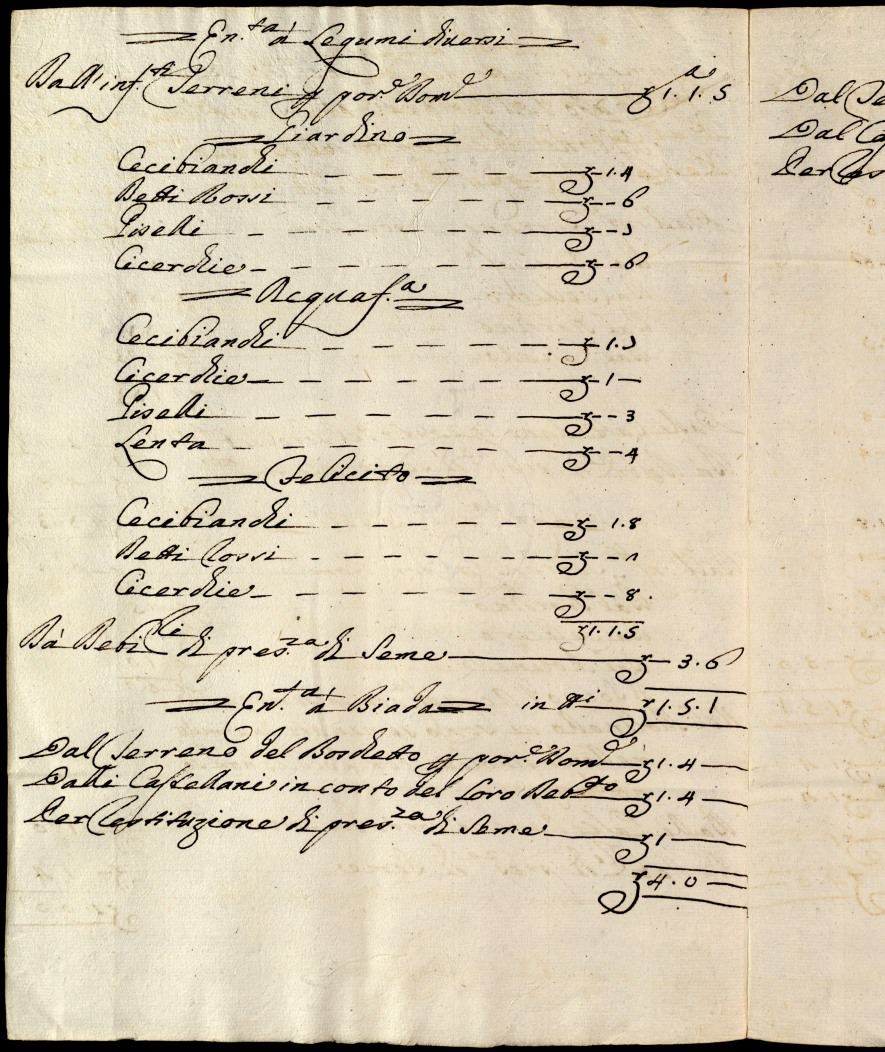 En.ta à Legumi diversi
Dall' inf.ti Terreni p por.e Dom.e 1. 1. 5
Giardino
Cecibianchi 1.4
Betti Rossi 6
Piselli
Cicerchie 6
Acquaf.a
Cecibianchi 1.
Cicerchie 1
Piselli 3
Lenta 4
Felicito
Cecibianchi 1.8
Betti Rossi
Cicerchie 8.
1.1.5
Da Debi.li di pres.za di Seme 3.6
En.ta à Biada in tt.i 1. 5. 1
Dal Terreno del Boschetto p por.e Dom.e 1. 4
Dalli Castellani in conto del Loro Deb.to 1. 4
Per Restituzione di pres.za di Seme 1
4. 0
Dal Te
Dal Ca
Per Res